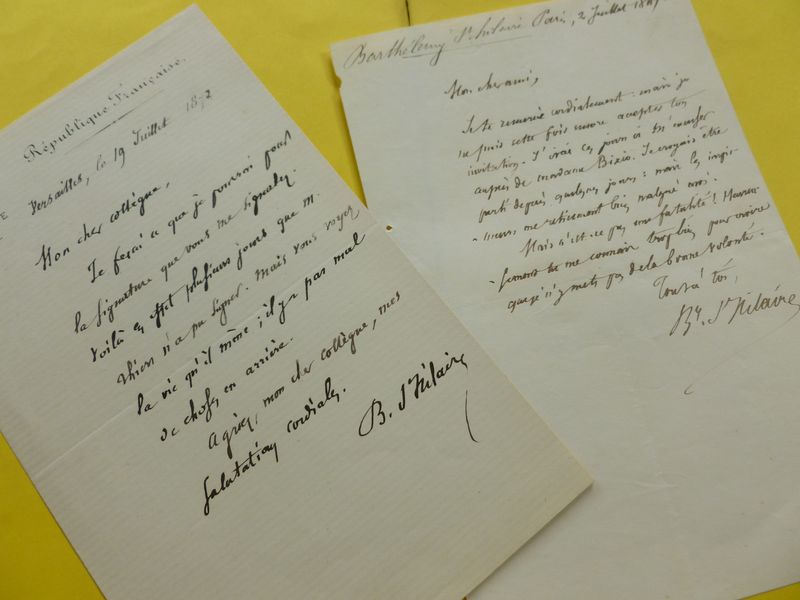 République Française.
Versailles, le 19 Juillet 1872
Mon cher collègue,
Je ferai ce que je pourrai pour
la signature que vous me signalez.
Voilà en effet plusieurs jours que M.
Thiers n'a pu signer. Mais vous voyez
la vie qu'il mène; il y a pas mal
de choses en arrière.
Agréez, mon cher collègue, mes
salutations cordiales.
B. St Hilaire
Barthélemy St hilaire Paris, 2 Juillet
Mon cher ami,
Je te remercie cordialement: mais je
ne puis cette fois encore accepter ton
invitation. J'irai ces jours à
auprès de madame Bixio. Je croyais être
parti depuis quelques jours: mais les
me retiennent bien malgré moi.
Mais n'est-ce pas une fatalité! Heureu-
-sement tu me connais trop bien pour croire
que je n'y mets pas de la bonne volonté.
Tout à toi,
By. St hilaire